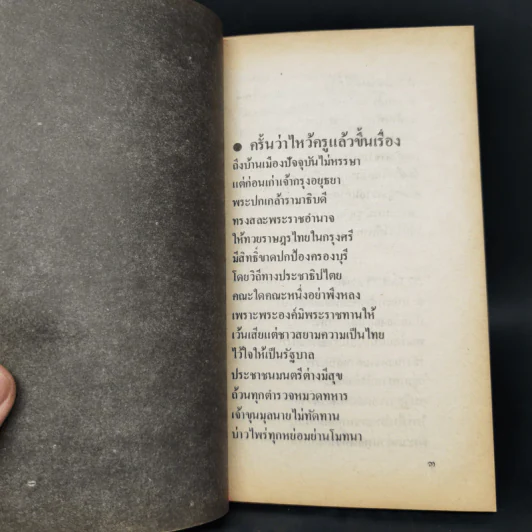 ● ครั้นว่าไหว้ครูแล้วขึ้นเรื่อง
ถึงบ้านเมืองปัจจุบันไม่หรรษา
แต่ก่อนเก่าเจ้ากรุงอยุธยา
พระปกเกล้ารามาธิบดี
ทรงสละพระราชอำนาจ
ให้ทวยราษฎรไทยในกรุงศรี
มีสิทธิ์ขาดปกป้องครองบุรี
โดยวิถีทางประชาธิปไตย
คณะใดคณะหนึ่งอย่าพึงหลง
เพราะพระองค์มิพระราชทานให้
เว้นเสียแต่ชาวสยามความเป็นไทย
ไว้ใจให้เป็นรัฐบาล
ประชาชนมนตรีต่างมีสุข
ถ้วนทุกตำรวจหมวดทหาร
เจ้าขุนมุลนายไม่ทัดทาน
บ่าวไพร่ทุกหย่อมย่านโมทนา